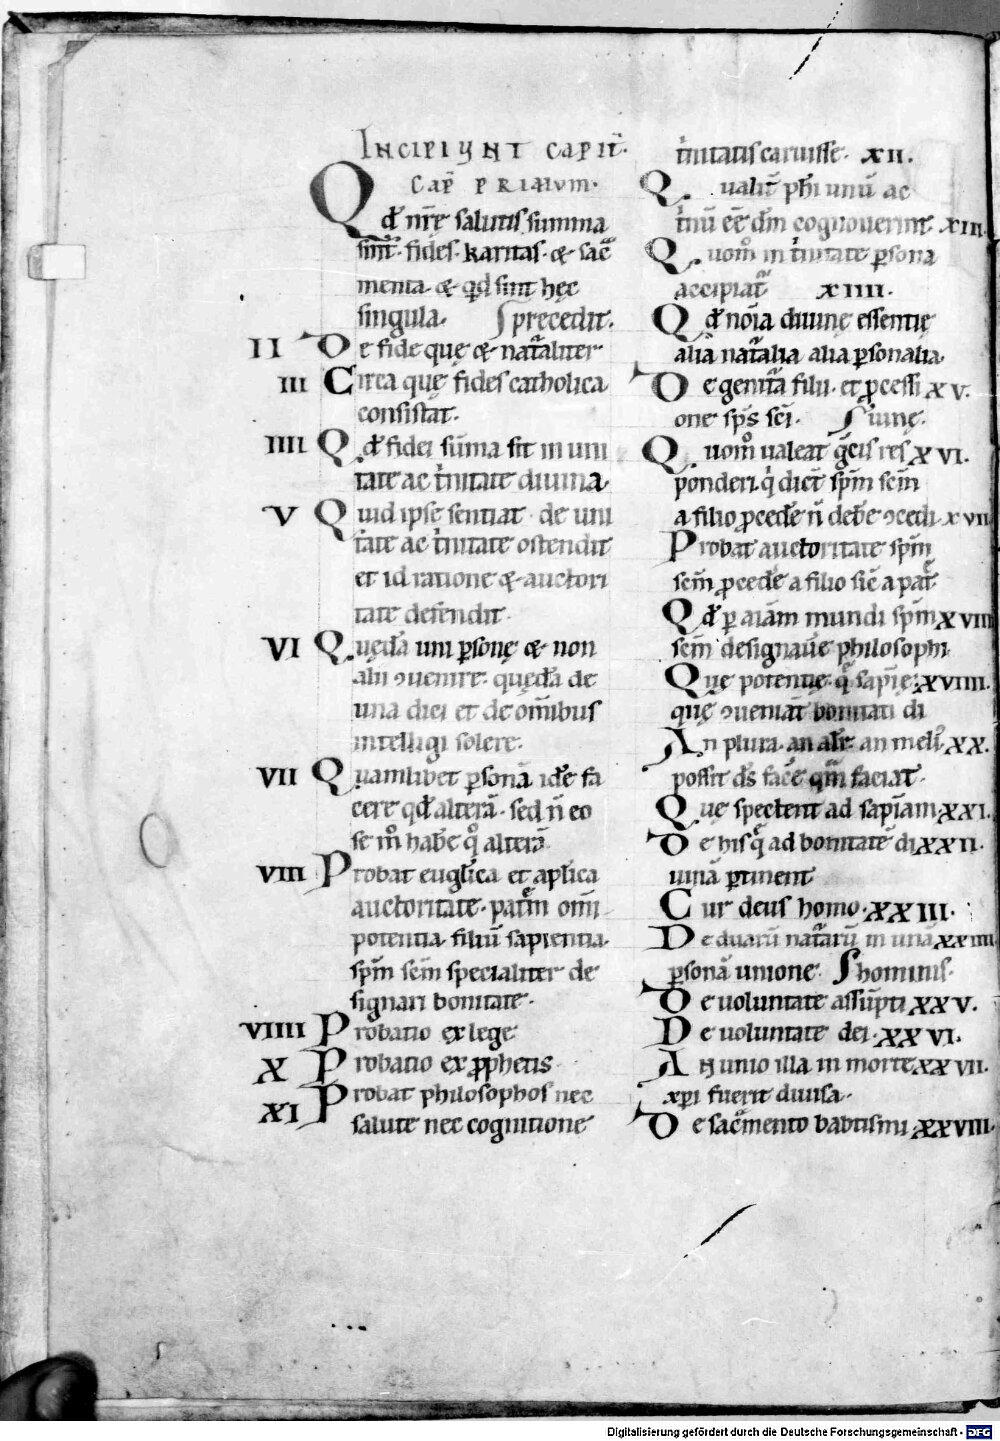 INCIPIUNT CAPIT̄.
CAP̄ PRIMUM.
Qd̄ nr̄ę salutis summa
sint. fides. karitas. & sac̄
menta. & qd̄ sint hęc
singula. precedit.
II De fide quę & nat̄aliter
III Circa quę fides catholica
consistat.
IIII Qd̄ fidei sūma sit in uni
tate ac t̓nitate diuina.
V Quid ipse sentiat de uni
tate ac t̓nitate ostendit
et id ratione & auctori
tate defendit.
VI Quędā uni p̱sonę & non
alii ɔuenire. quędā de
una dici et de om̄ibus
intelligi solere.
VII Quamlibet p̱sonā idē fa
cere qd̄ alterā. sed n̄ eo
se m̊ habē q̊ alterā
VIII Probat eugl̄ica et apl̄ica
auctoritate. patr̄m omi
potentia. filiū sapientia.
sp̄m sc̄m specialiter de
signari bonitate.
VIIII Probatio ex lege
X Probatio ex ꝓphetis
XI Probat philosophos nec
salute nec cognitione
t̓nitatis caruisse. XII.
Qualit̄ ph̄i unū ac
t̓nū ēē dm̄ cognouerint. XIII.
Quom̊ in t̓nitate p̱sona
accipiat᷑ XIIII.
Qd̄ nōia diuinę essentię
alia nat̄alia alia p̱sonalia.
De genit̄a filii. et ꝓcessi XV.
one sp̄s sc̄i. iunę.
Quom̊ ualeat ḡcis res XVI.
ponderi. q̓ dic̄t sp̄m sc̄m
a filio ꝓcedē n̄ debē ɔcedi. XVII
Probat auctoritate sp̄m
sc̄m ꝓcedē a filio sic̄ a pat̄
Qd̄ p̱ aīam mundi sp̄m XVIII
sc̄m designauē philosophi
Quę potentię. q̄ sapīę. XVIIII.
quę ɔueniāt bonitati di
An plura. an alīt an meli᷒ XX.
possit ds̄ facē qm̄ faciat.
Quę spectent ad sapīam XXI.
De his q̄ ad bonitatē di XXII.
uinā p̱tinent
Cur deus homo. XXIII.
De duarū nat̄arū in unā XXIIII
p̱sonā unione. hominis.
De uoluntate assūpti XXV.
De uoluntate dei. XXVI.
An unio illa in morte XXVII.
xp̄i fuerit diuisa.
De sac̄mento babtismi. XXVIII.
Digitalisierung gefördert durch die Deutsche Forschungsgemeinschaft - DFG